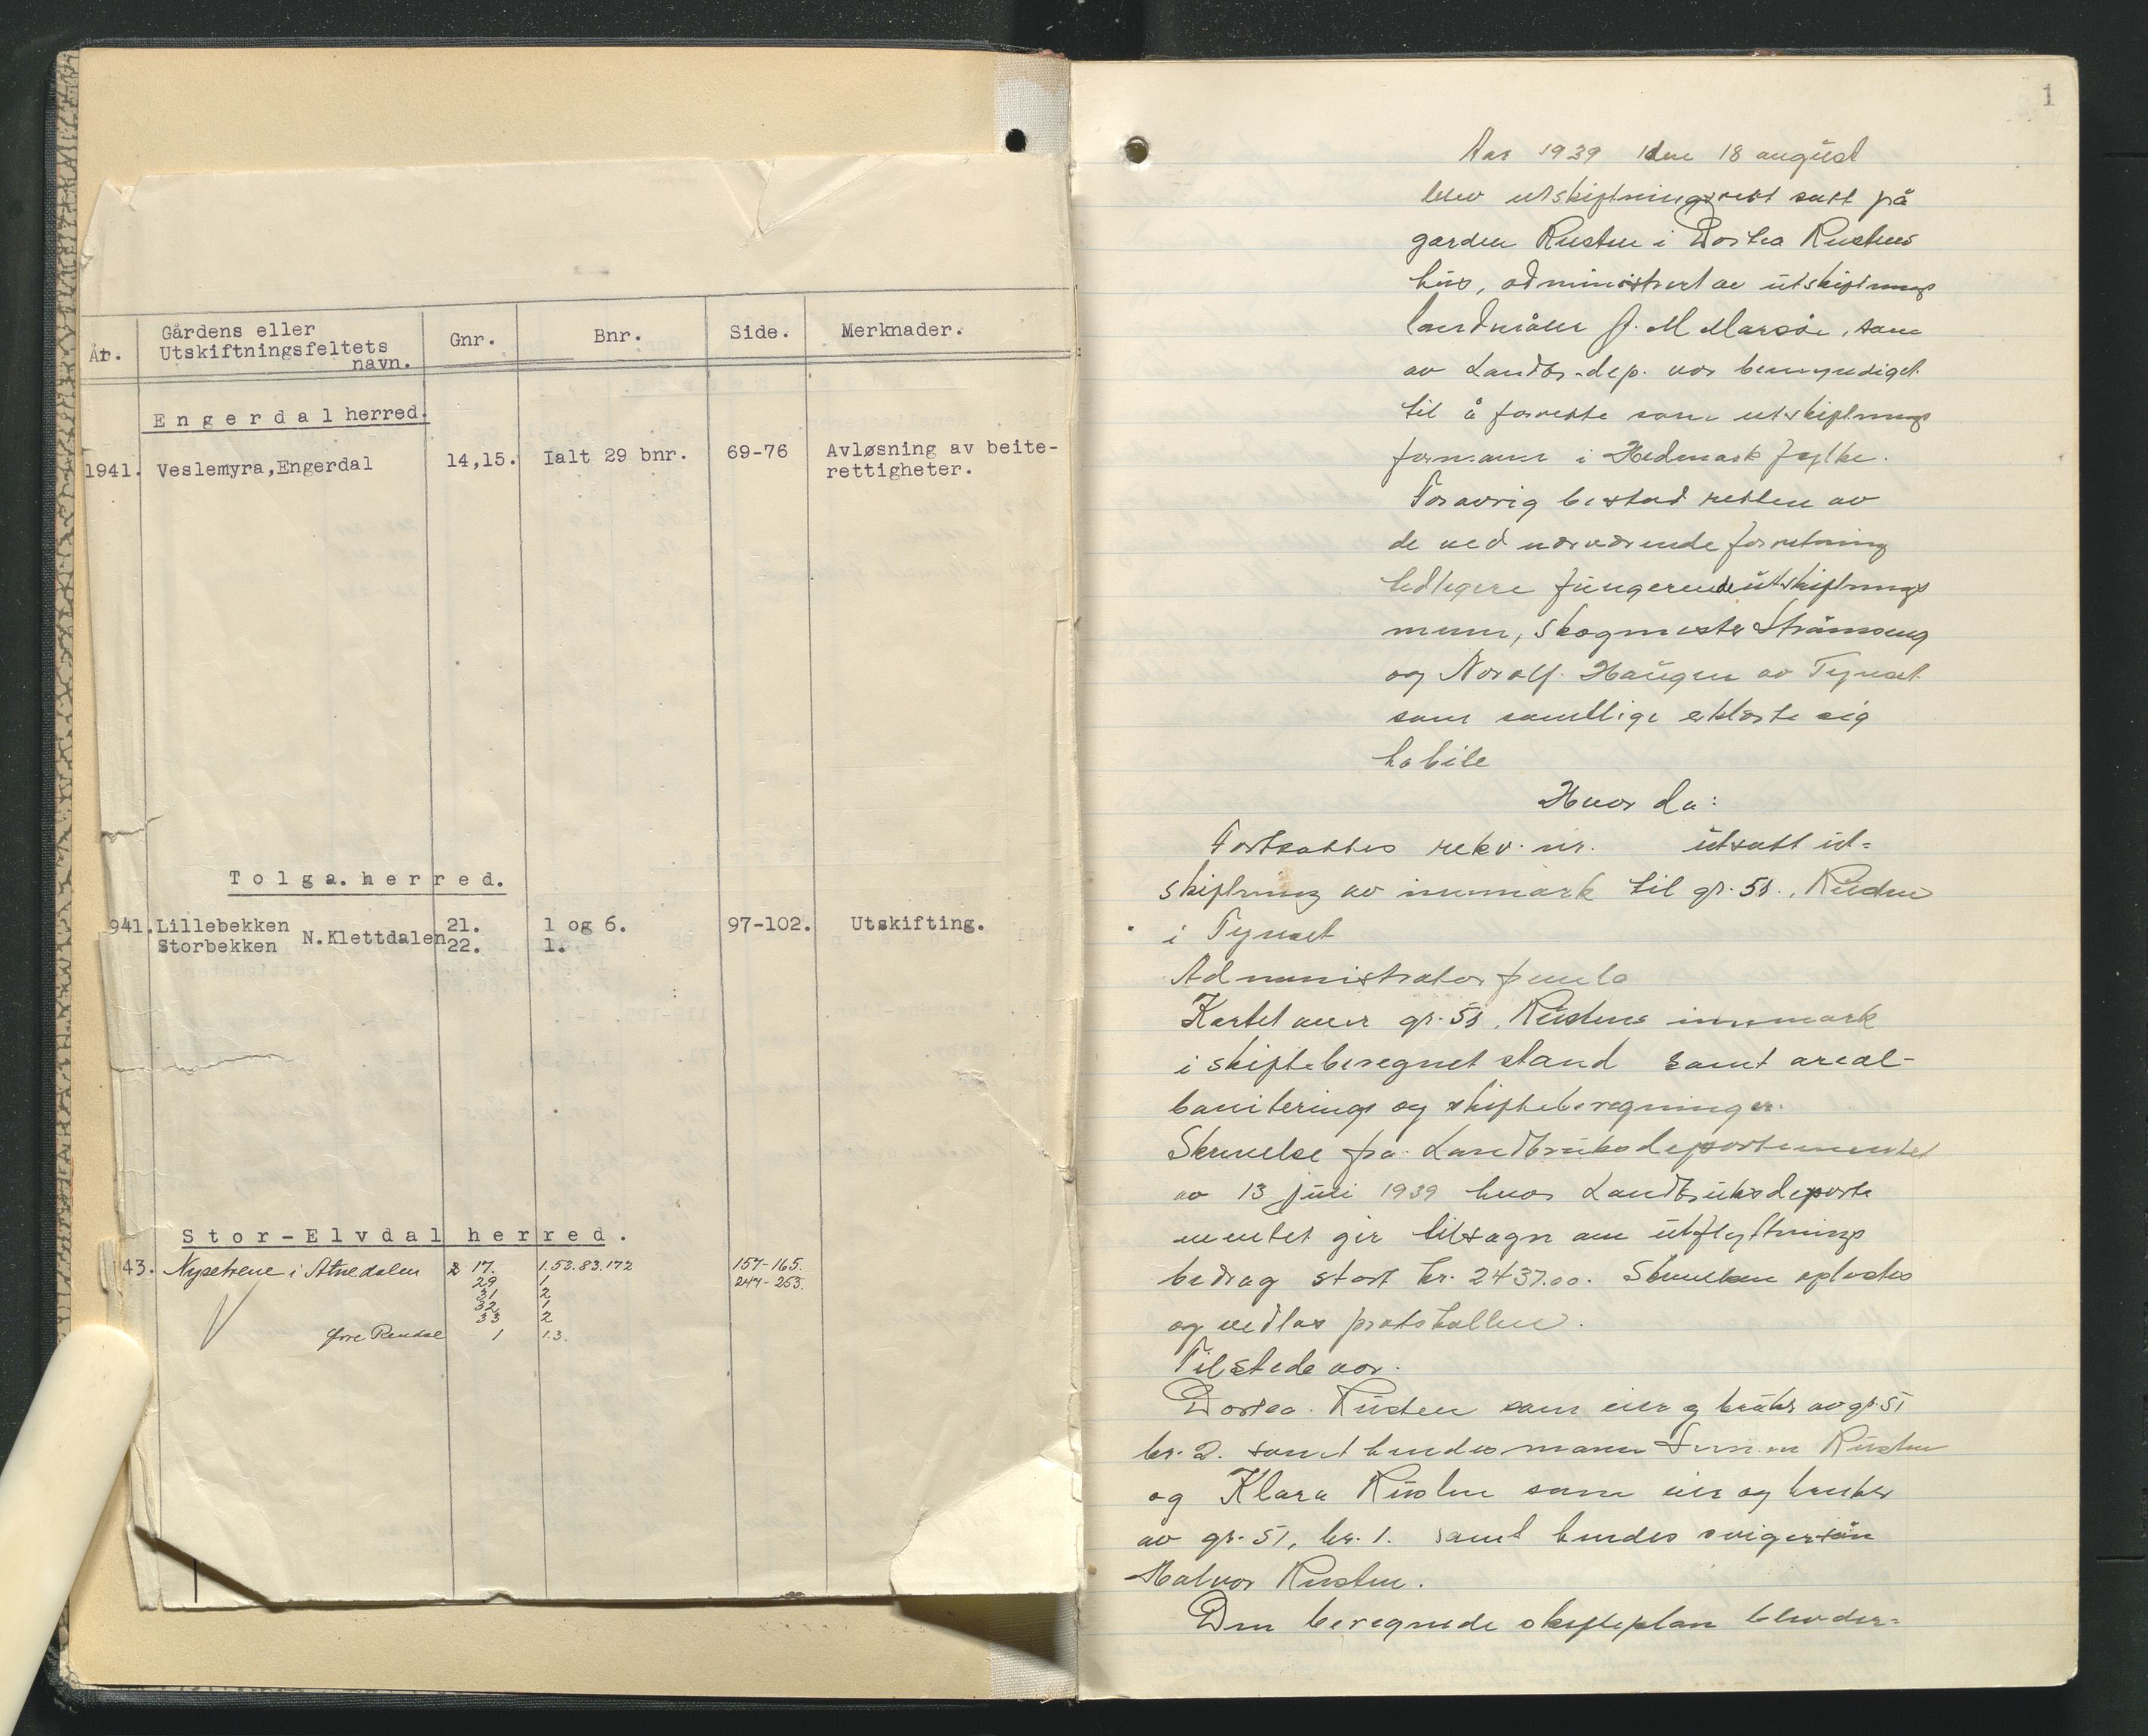 År.
Gårdens eller
Utskiftningsfeltets
navn.
Gnr.
Bnr.
Side.
Merknader.
Engerdal herred.
1941. Veslemyra,Engerdal 14,15. Ialt 29 bnr. 69-76 Avløsning av beite-
rettigheter.
Tolga.herred.
941. Lillebekken 21. 1 og 6. 97-102. Utskifting.
Storbekken N.Klettdalen 22. 1.
Stor-Elvdal herred.
43. Nysetrene i Atnedalen 17. 1.53.83.172 157-165.
29 1 247-253.
31 2
32 1
33 2
Øvre Rendal 1 1.3.
1
Aar 1939 den 18 august
blev utskiftningsrett satt på
garden Rusten i Dortea Rustens
hus, administrert av utskiftnings
landmåler J. M. Marsøe, som
av Landbr.dep. var bemyndiget
til å forrette som utskiftnings
formann i Hedmark fylke.
Foravrig bestod retten av
de ved nærværende forretning
tidligere fungerende utskiftnings
menn, skogmester Strømseng
og Norolf Haugen av Tynset
som samtlige erklærte sig
habile
Hvor da:
Fortsattes rekv. nr. utsatt ut=
skiftning av innmark til gr. 51. Rusten
i Tynset
Administrator fremla
Kartet over gr. 51, Rustens innmark
i skifteberegnet stand samt areal-
boniterings og skifteberegninger.
Skrivelse fra Landbruksdepartementet
av 13 juli 1939 hvor Landbruksdeparte
mentet gir tilsagn om utflytnings
bidrag stort kr. 2437.00. Skrivelsen oplæstes
og vedlas protokollen.
Tilstede var.
Dortea Rusten som eier og bruker av gr. 51
br. 2. samt hendes mann Rusten
og Klara Rusten som eier og bruker
av gr. 51, br. 1. samt hendes svigersøn
Halvor Rusten.
Den beregnede skifteplan blev der=